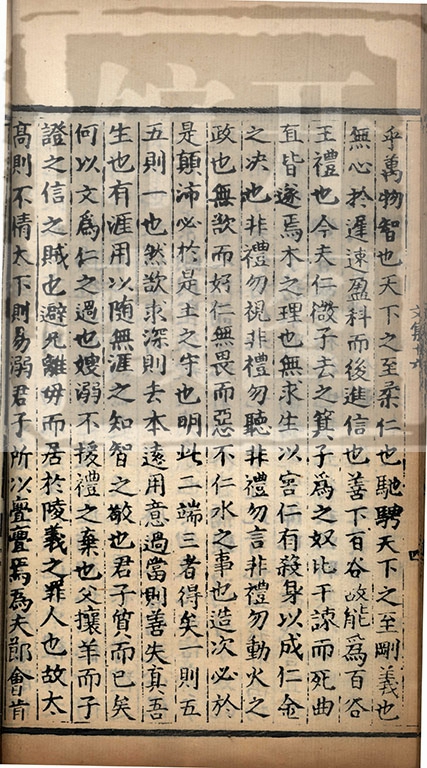 乎萬物智也天下之至柔仁也馳騁天下之至剛義也
無心於遲速盈科而後進信也善下百谷故能爲百谷
王禮也今夫仁微子去之箕子爲之奴比干諫而死曲
直皆遂焉木之理也無求生以害仁有殺身以成仁金
之决也非禮勿視非禮勿聽非禮勿言非禮勿動火之
政也無欲而好仁無畏而惡不仁水之事也造次必於
是顛沛必於是土之守也明此二端三者得矣一則五
五則一也然欲求深則去本遠用意過當則善失真吾
生也有涯用以隨無涯之知智之敝也君子質而已矣
何以文爲仁之過也嫂溺不援禮之棄也父攘羊而子
證之信之賊也避兄離母而居於陵義之罪人也故太
高則不情太下則易溺君子所以亹亹焉爲夫鄖會肯
文集十六
四